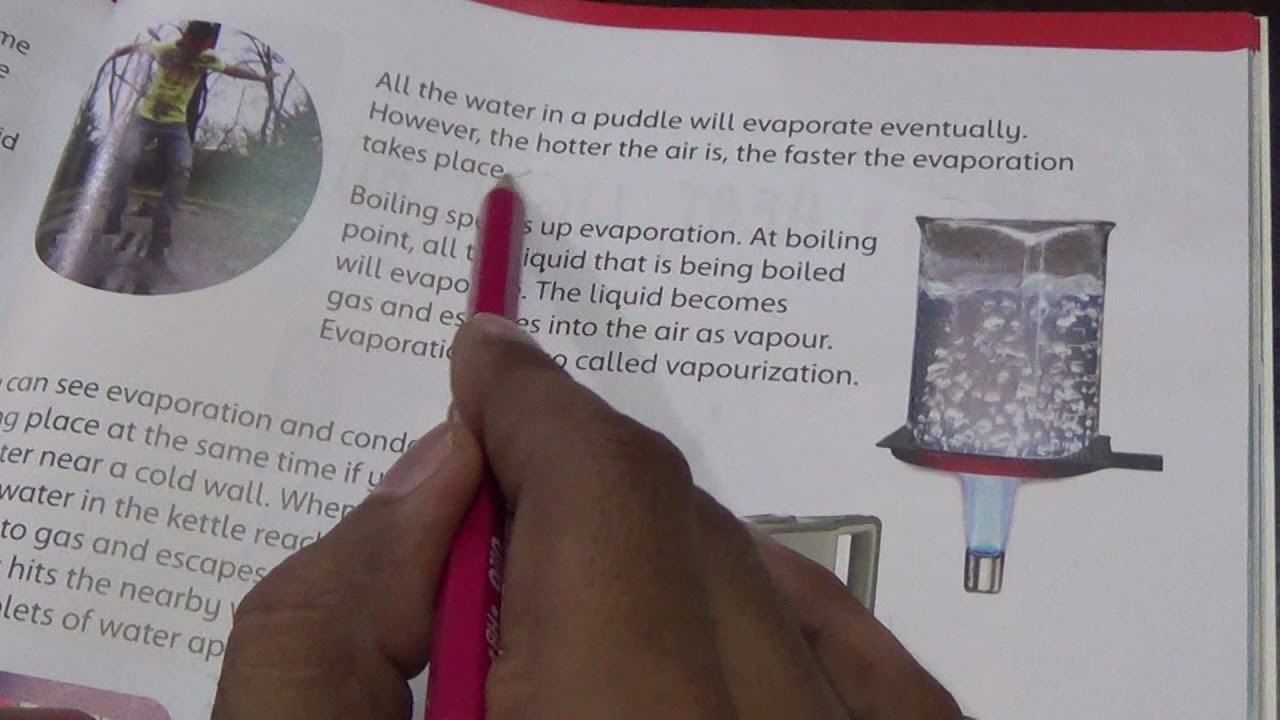 me
e
id
All the water in a puddle will evaporate eventually.
However, the hotter the air is, the faster the evaporation
takes place
Boiling up evaporation. At boiling
point, all liquid that is being boiled
will The liquid becomes
gas and into the air as vapour.
called vapourization.
can see evaporation and
place at the same time if
near a cold wall.
water in the kettle
to gas and escapes
hits the nearby
of water